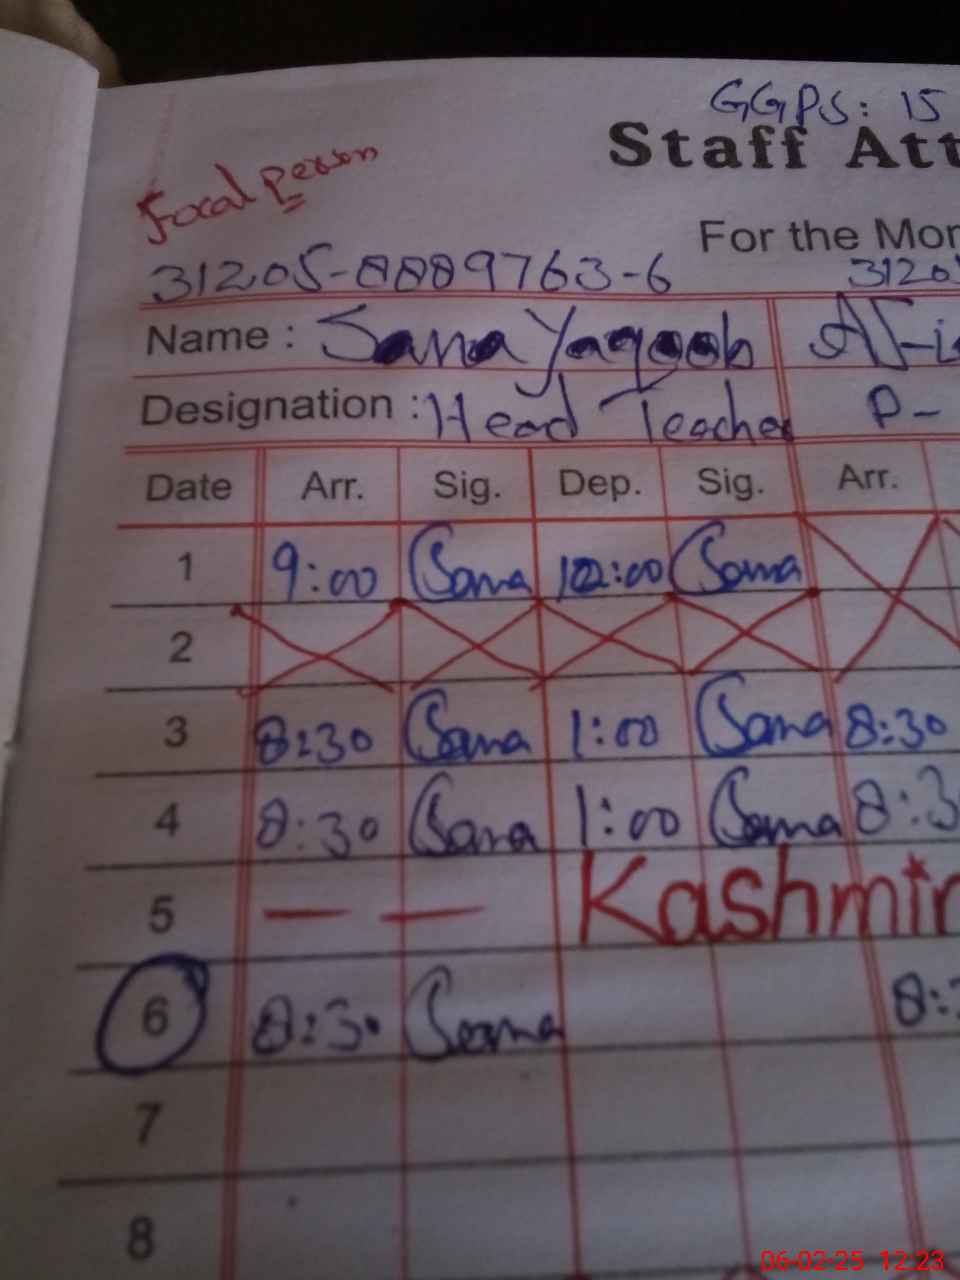 GGPS: 15
Staff Att
Focal person
For the Mon
31205-8889763-6 3120
Name : Sana Yaqoob
Designation : Head Teacher P-
Date Arr. Sig. Dep. Sig. Arr.
1 9:00 Sana 12:00 Sana
2
3 8:30 Sana 1:00 Sana 8:30
4 8:30 Sana 1:00 Sana 8:3
5 — — Kashmir
6 8:30 Sana 8:
7
8
06-02-25 12:23